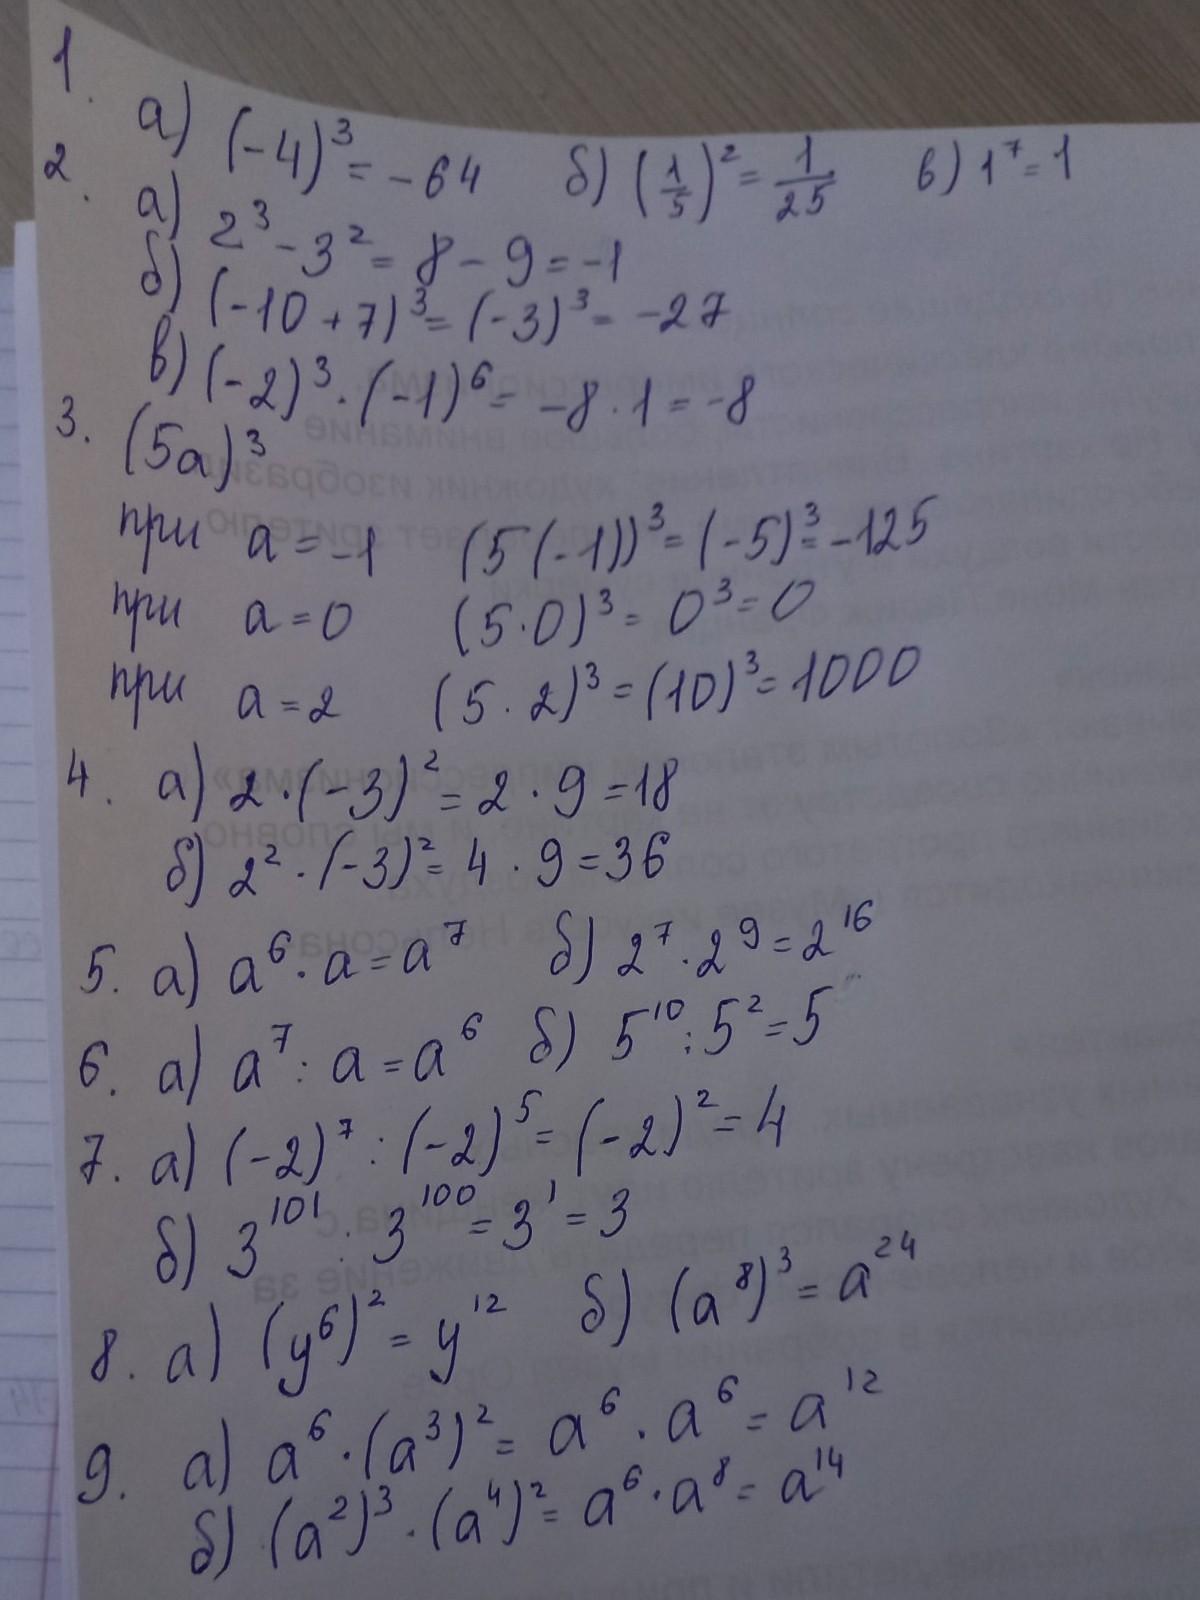 1. а) (-4)³ = -64 б) (1/5)² = 1/25 в) 1⁷ = 1
2. а) 2³ - 3² = 8 - 9 = -1
б) (-10 + 7)³ = (-3)³ = -27
в) (-2)³ · (-1)⁶ = -8 · 1 = -8
3. (5а)³
при а = -1 (5(-1))³ = (-5)³ = -125
при а = 0 (5 · 0)³ = 0³ = 0
при а = 2 (5 · 2)³ = (10)³ = 1000
4. а) 2 · (-3)² = 2 · 9 = 18
б) 2² · (-3)² = 4 · 9 = 36
5. а) а⁶ · а = а⁷ б) 2⁷ · 2⁹ = 2¹⁶
6. а) а⁷ : а = а⁶ б) 5¹⁰ : 5² = 5
7. а) (-2)⁷ : (-2)⁵ = (-2)² = 4
б) 3¹⁰¹ : 3¹⁰⁰ = 3¹ = 3
8. а) (у⁶)² = у¹² б) (а⁸)³ = а²⁴
9. а) а⁶ · (а³)² = а⁶ · а⁶ = а¹²
б) (а²)³ · (а⁴)² = а⁶ · а⁸ = а¹⁴